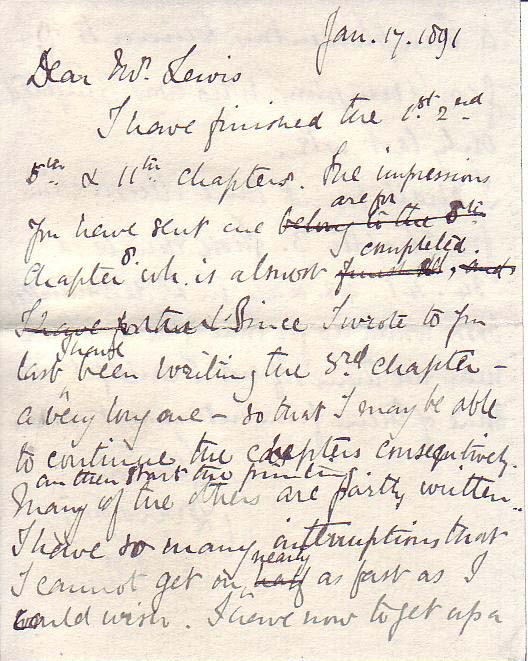 Jan. 17. 1891
Dear Mr. Lewis
I have finished the 1st 2nd
5th & 11th chapters. The impressions
are for
you have sent me belong to the 8th
completed.
chapter 8. wh. is almost finished, and
I have further Since I wrote to you
I have
last been writing the 3rd chapter –
a very long one – so that I may be able
to continue the chapters consecutively.
an then start the printing
Many of the others are partly written –
I have so many interruptions that
nearly
I cannot get on half as fast as I
could wish. I have now to get up a